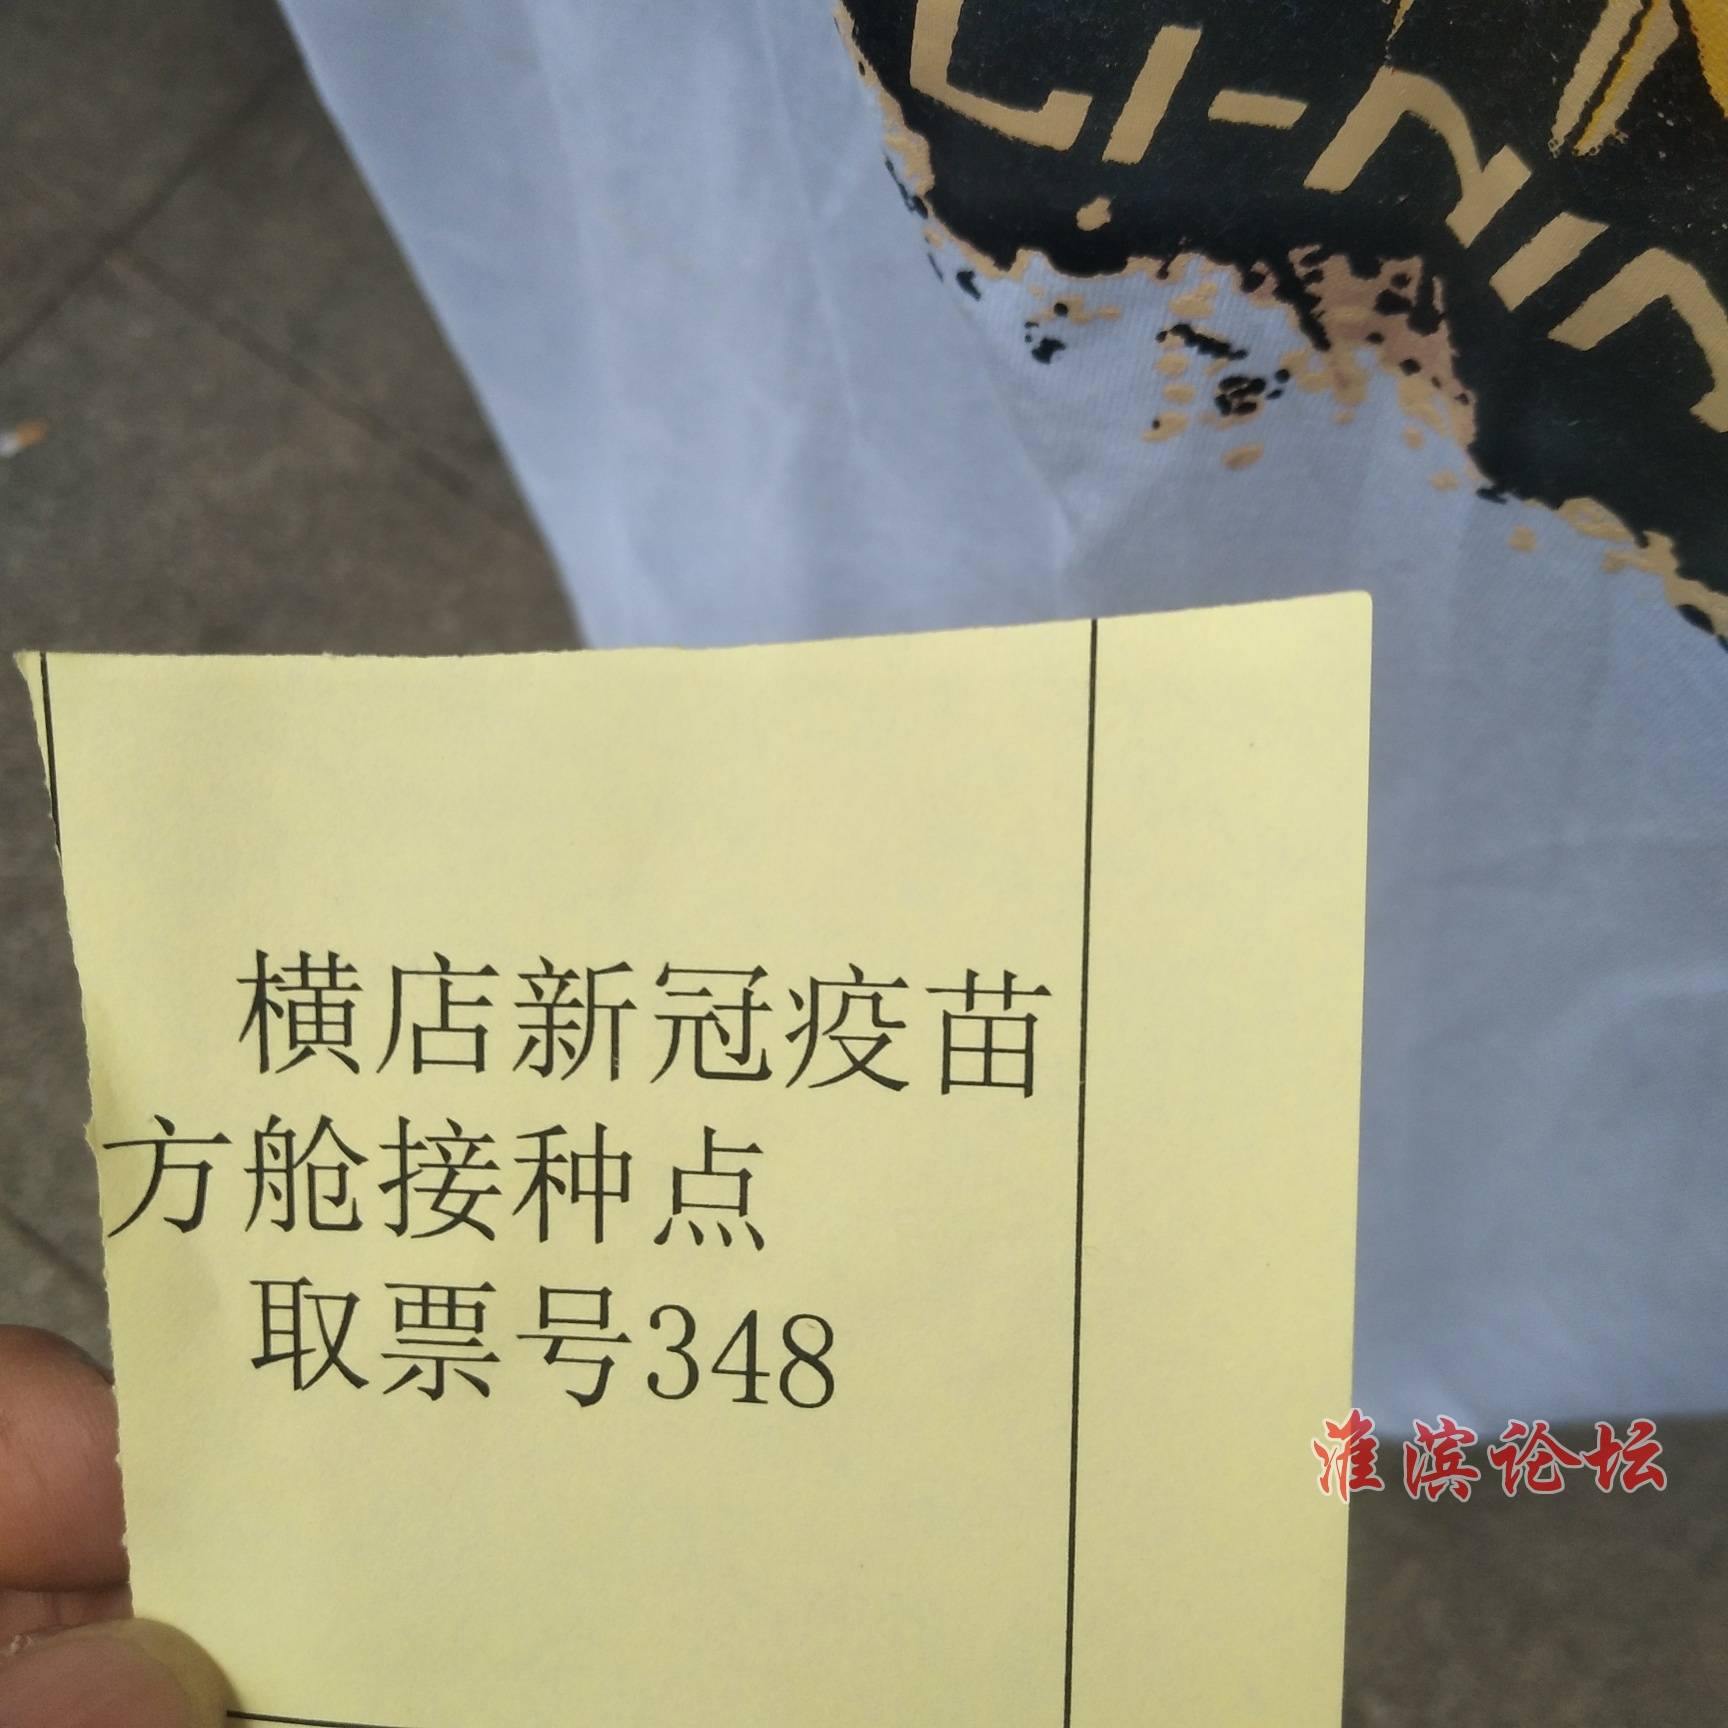 横店新冠疫苗
方舱接种点
取票号348
淮滨论坛